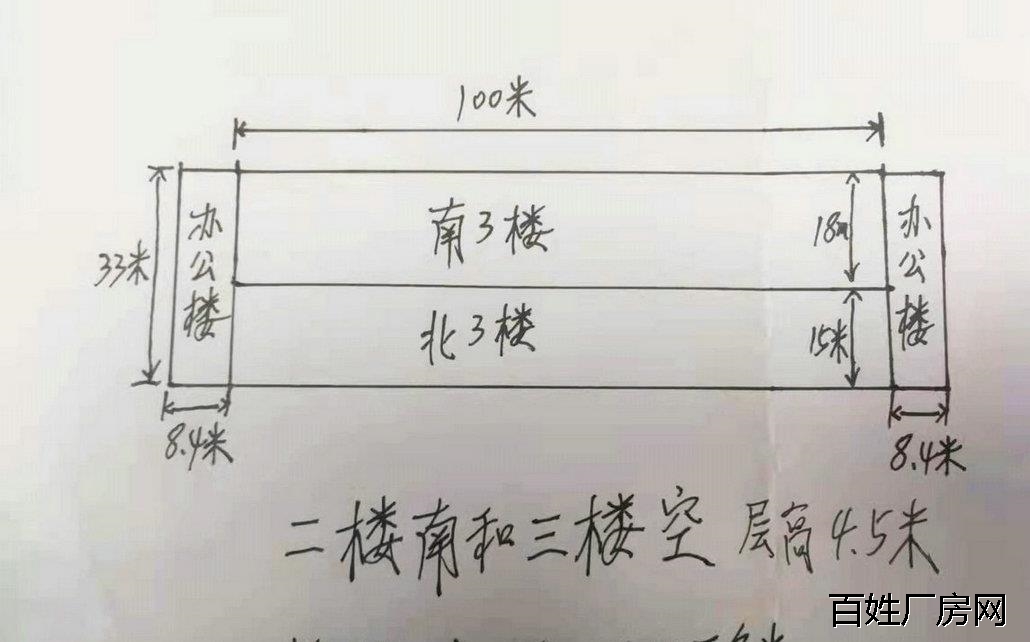 100米
南3楼
18m
33米
办公楼
办公楼
北3楼
15米
8.4米
8.4米
二楼南和三楼空 层高4.5米
百姓厂房网